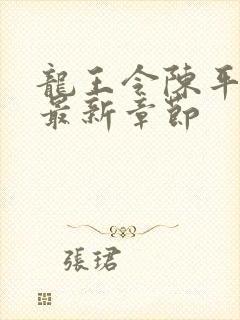 龍王令陳平
最新章節
張珺